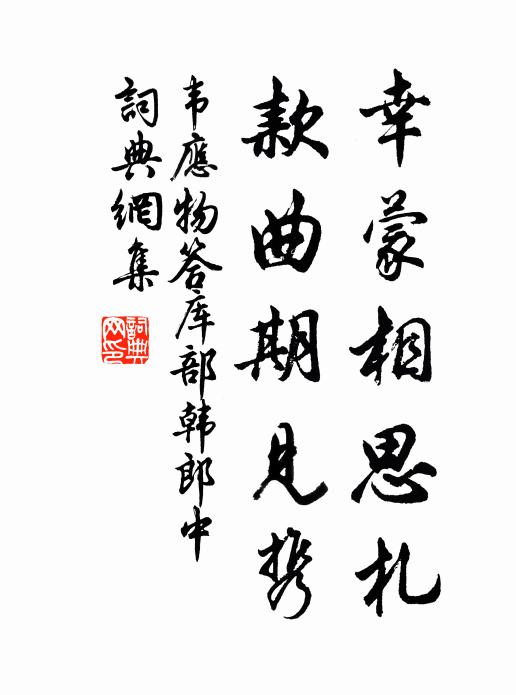 幸蒙相思札
款曲期见携
韦應物答库部韩郎中
詞典網集
詞典网印